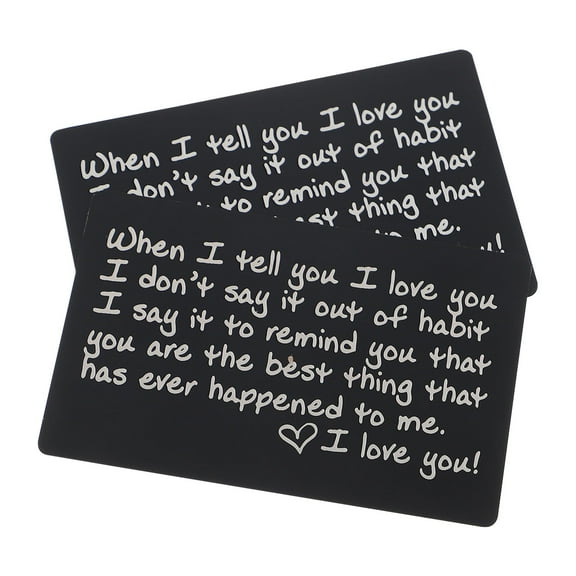 When I tell you I love you
I don't say it out of habit
to remind you that
best thing that
to me.
you!
When I tell you I love you
I don't say it out of habit
I say it to remind you that
you are the best thing that
has ever happened to me.
♡ I love you!